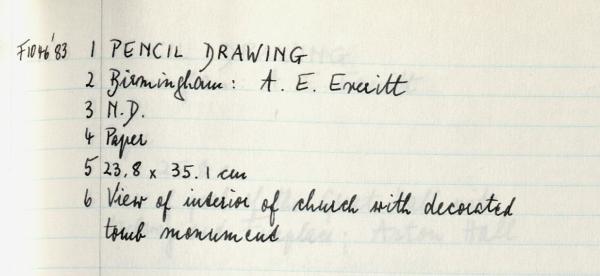 F1046'83 1 PENCIL DRAWING
2 Birmingham: A. E. Everitt
3 N.D.
4 Paper
5 23.8 x 35.1 cm
6 View of interior of church with decorated
tomb monument